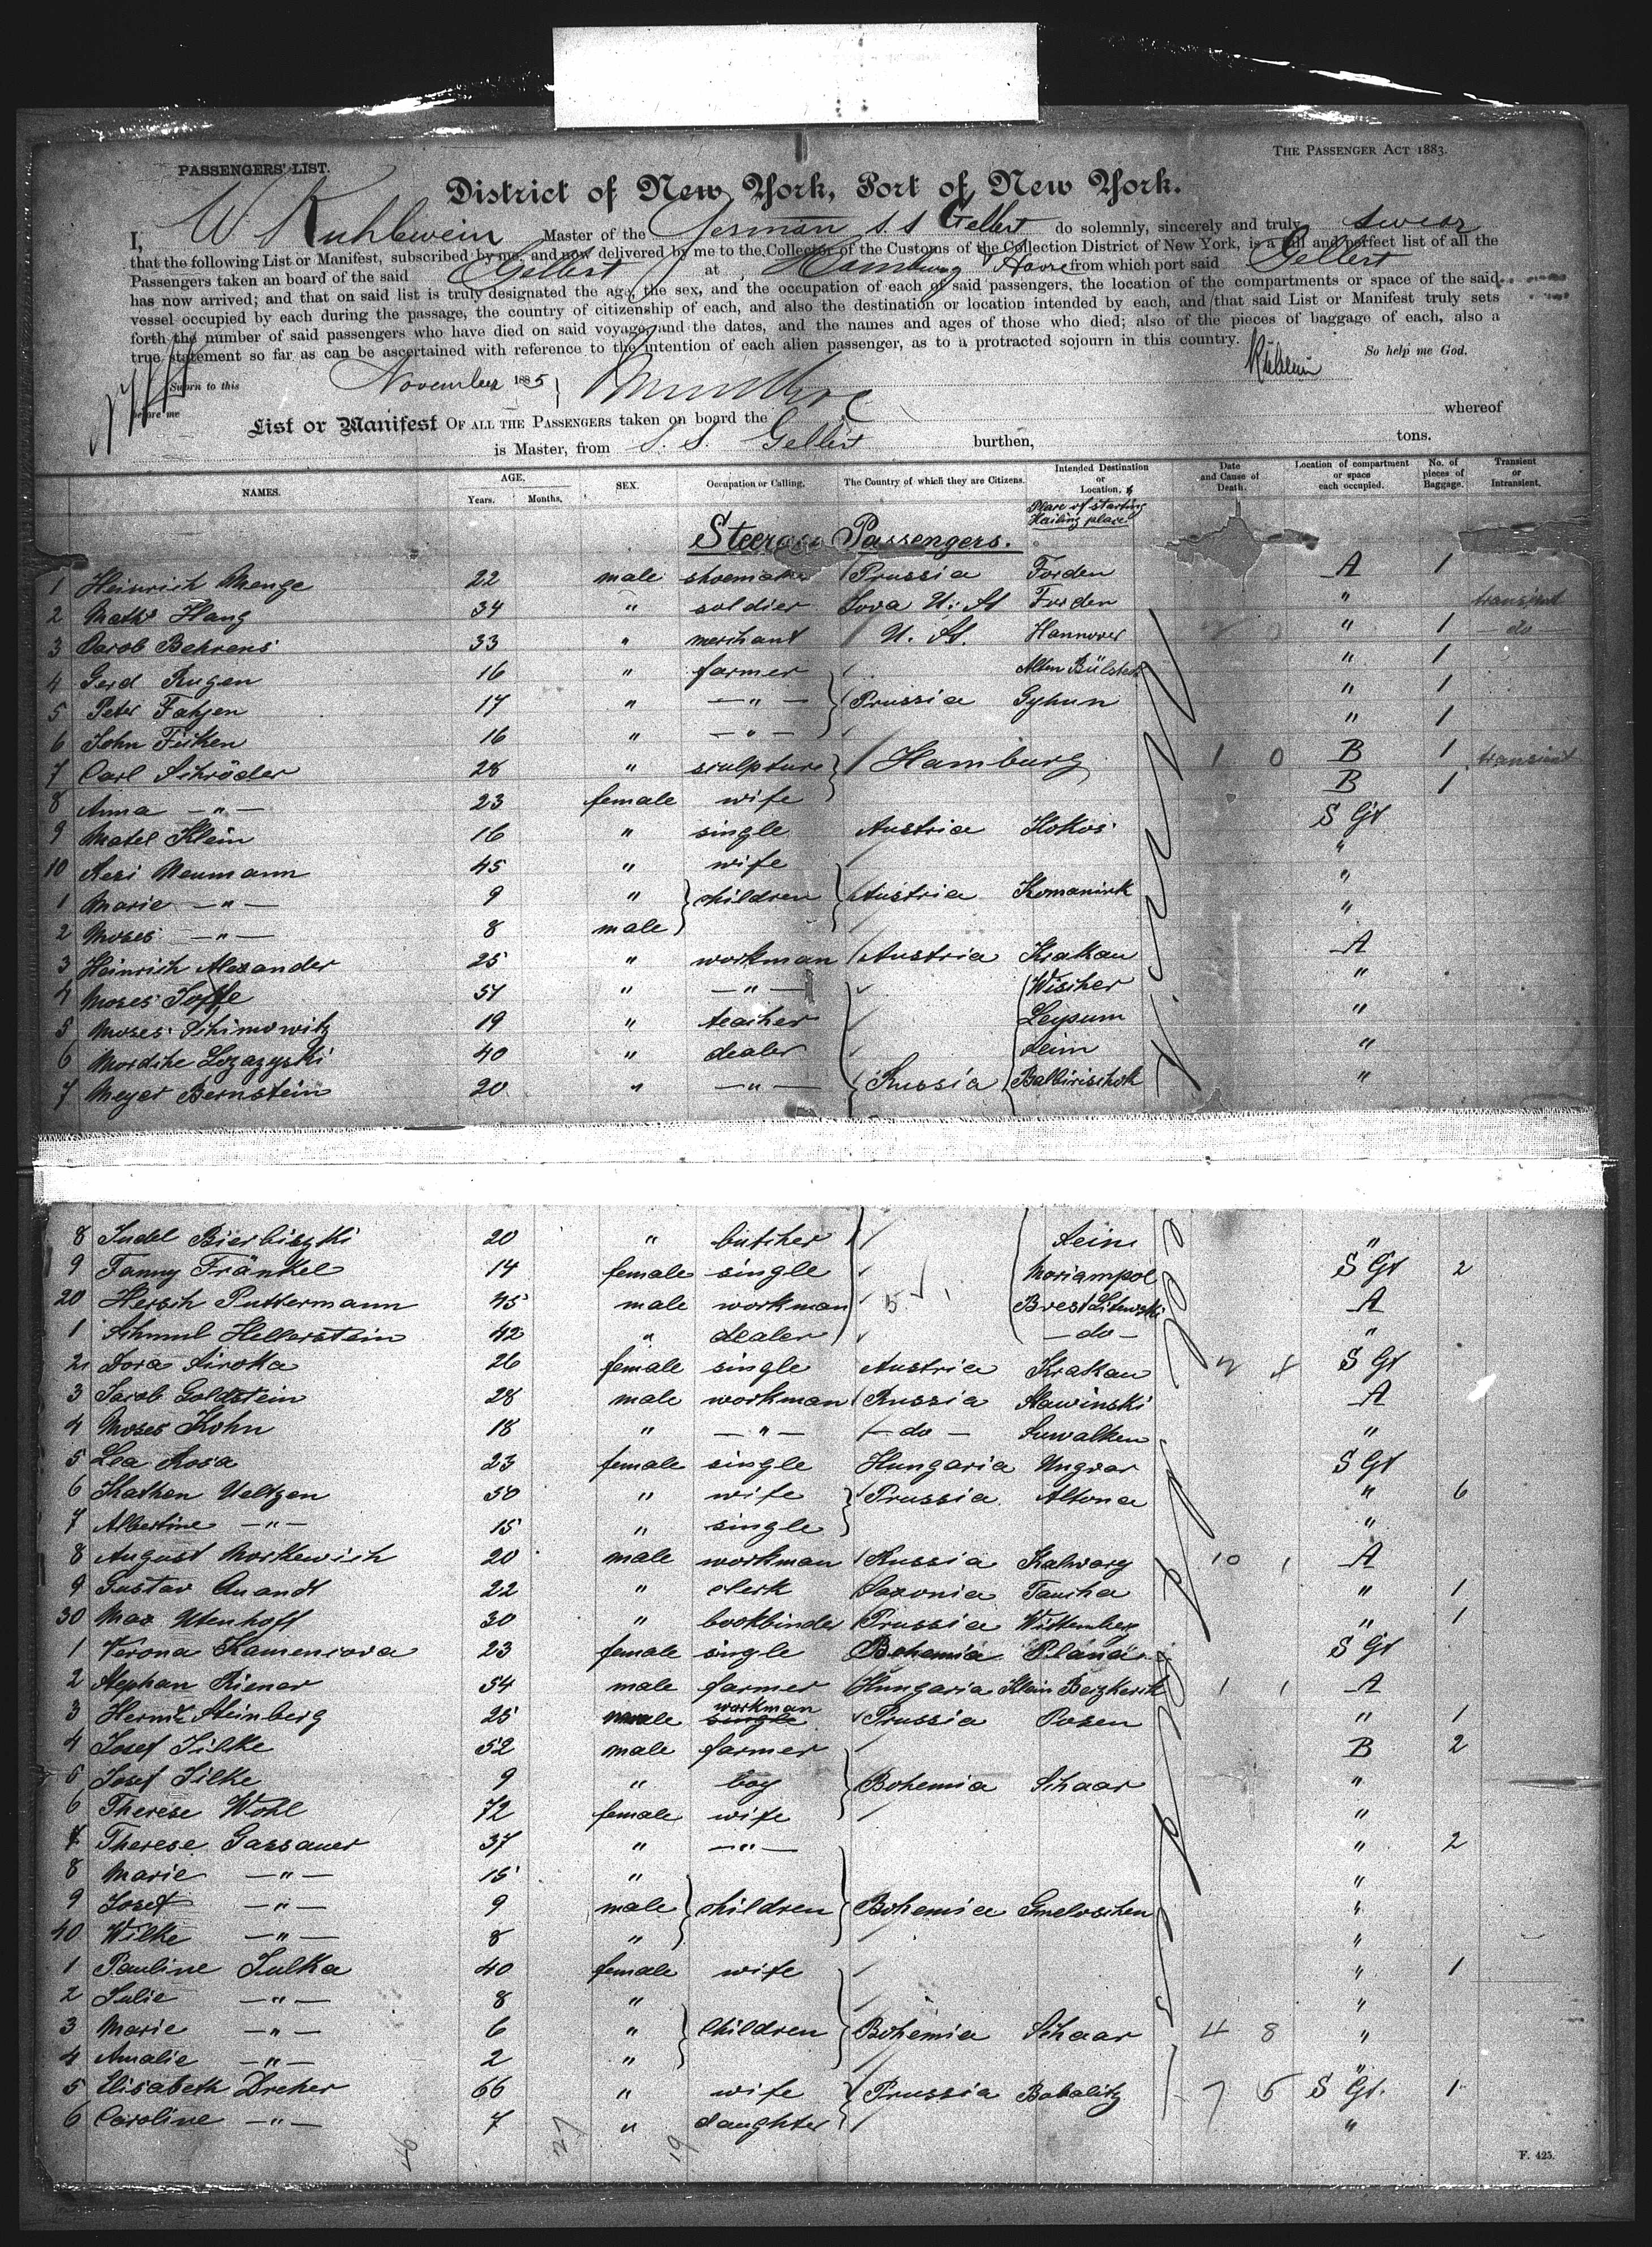 THE PASSENGER ACT 1883.
PASSENGERS' LIST.
District of New York, Port of New York.
I, W Kuhlewein Master of the German S. S Gellert do solemnly, sincerely and truly swear
that the following List or Manifest, subscribed by me, and now delivered by me to the Collector of the Customs of the Collection District of New York, is a full and perfect list of all the
Passengers taken on board of the said Gellert at Hamburg Havre from which port said Gellert
has now arrived; and that on said list is truly designated the age, the sex, and the occupation of each of said passengers, the location of the compartments or space of the said
vessel occupied by each during the passage, the country of citizenship of each, and also the destination or location intended by each, and that said List or Manifest truly sets
forth the number of said passengers who have died on said voyage, and the dates, and the names and ages of those who died; also of the pieces of baggage of each, also a
true statement so far as can be ascertained with reference to the intention of each alien passenger, as to a protracted sojourn in this country.
So help me God.
Sworn to this November 1885
before me
List or Manifest OF ALL THE PASSENGERS taken on board the whereof
is Master, from S. S. Gellert burthen, tons.
NAMES. AGE. Years. Months. SEX. Occupation or Calling. The Country of which they are Citizens. Intended Destination or Location, & Place of starting Hailing place Date and Cause of Death. Location of compartment or space each occupied. No. of pieces of Baggage. Transient or Intransient.
Steerage Passengers.
1 Heinrich Menge 22 male shoemaker Prussia Forden A 1
2 Maths Hang 34 " soldier Iova U. St Forden " transient
3 Jacob Behrens 33 " merchant U. St. Hannover " 1 do
4 Gerd Rugen 16 " farmer Alten Bülstedt " 1
5 Peter Fahjen 17 " — " — Prussia Gyhun " 1
6 John Fitken 16 " — " — " 1
7 Carl Schröder 28 " sculpture Hamburg 1 0 B 1 transient
8 Anna — " — 23 female wife B 1
9 Matel Klein 16 " single Austria Kokos S Gt
10 Resi Neumann 45 " wife "
1 Marie — " — 9 " children Austria Komanink "
2 Moses — " — 8 male "
3 Heinrich Alexander 25 " workman Austria Krakau A
4 Moses Joffe 54 " — " — Wischer "
5 Moses Schimowitz 19 " teacher Leypum "
6 Mordche Lozazyski 40 " dealer Seim "
7 Meyer Bernstein 20 " — " — Russia Balbirischok "
8 Judel Bierbiszki 20 " butcher Seim "
9 Fanny Fränkel 14 female single Mariampol S Gt 2
20 Hersch Puttermann 45 male workman Brest Litowski A
1 Schmul Hellerstein 42 " dealer — do — "
2 Dora Siroka 26 female single Austria Krakau S Gt
3 Jacob Goldstein 28 male workman Russia Slawinski A
4 Moses Kohn 18 " — " — — do — Suwalken "
5 Lea Rosa 23 female single Hungaria Ungvar S Gt
6 Kathen Ueltzen 50 " wife Prussia Altona " 6
7 Albertine — " — 15 " single "
8 August Morkewich 20 male workman Russia Kalvary 10 1 A
9 Gustav Quandt 22 " clerk Saxonia Taucha " 1
30 Max Utenholf 30 " bookbinder Prussia Wittemberg " 1
1 Verona Kameniova 23 female single Bohemia Plana S Gt
2 Stephan Rienar 54 male farmer Hungaria Klein Bezkerek 1 1 A
3 Herm. Steinberg 25 male workman Prussia Posen " 1
4 Josef Jilke 52 male farmer B 2
5 Josef Jilke 9 " boy Bohemia Schaar "
6 Therese Wohl 72 female wife "
7 Therese Gassauer 37 " — " — " 2
8 Marie — " — 15 " "
9 Josef — " — 9 male children Bohemia Gmeloschen "
40 Wilke — " — 8 " "
1 Pauline Julka 40 female wife " 1
2 Julie — " — 8 " "
3 Marie — " — 6 " children Bohemia Schaar 4 8 "
4 Amalie — " — 2 " "
5 Elisabeth Dreher 66 " wife Prussia Bobalitz 7 5 S Gt. 1
6 Caroline — " — 7 " daughter "
27 19
F. 425.